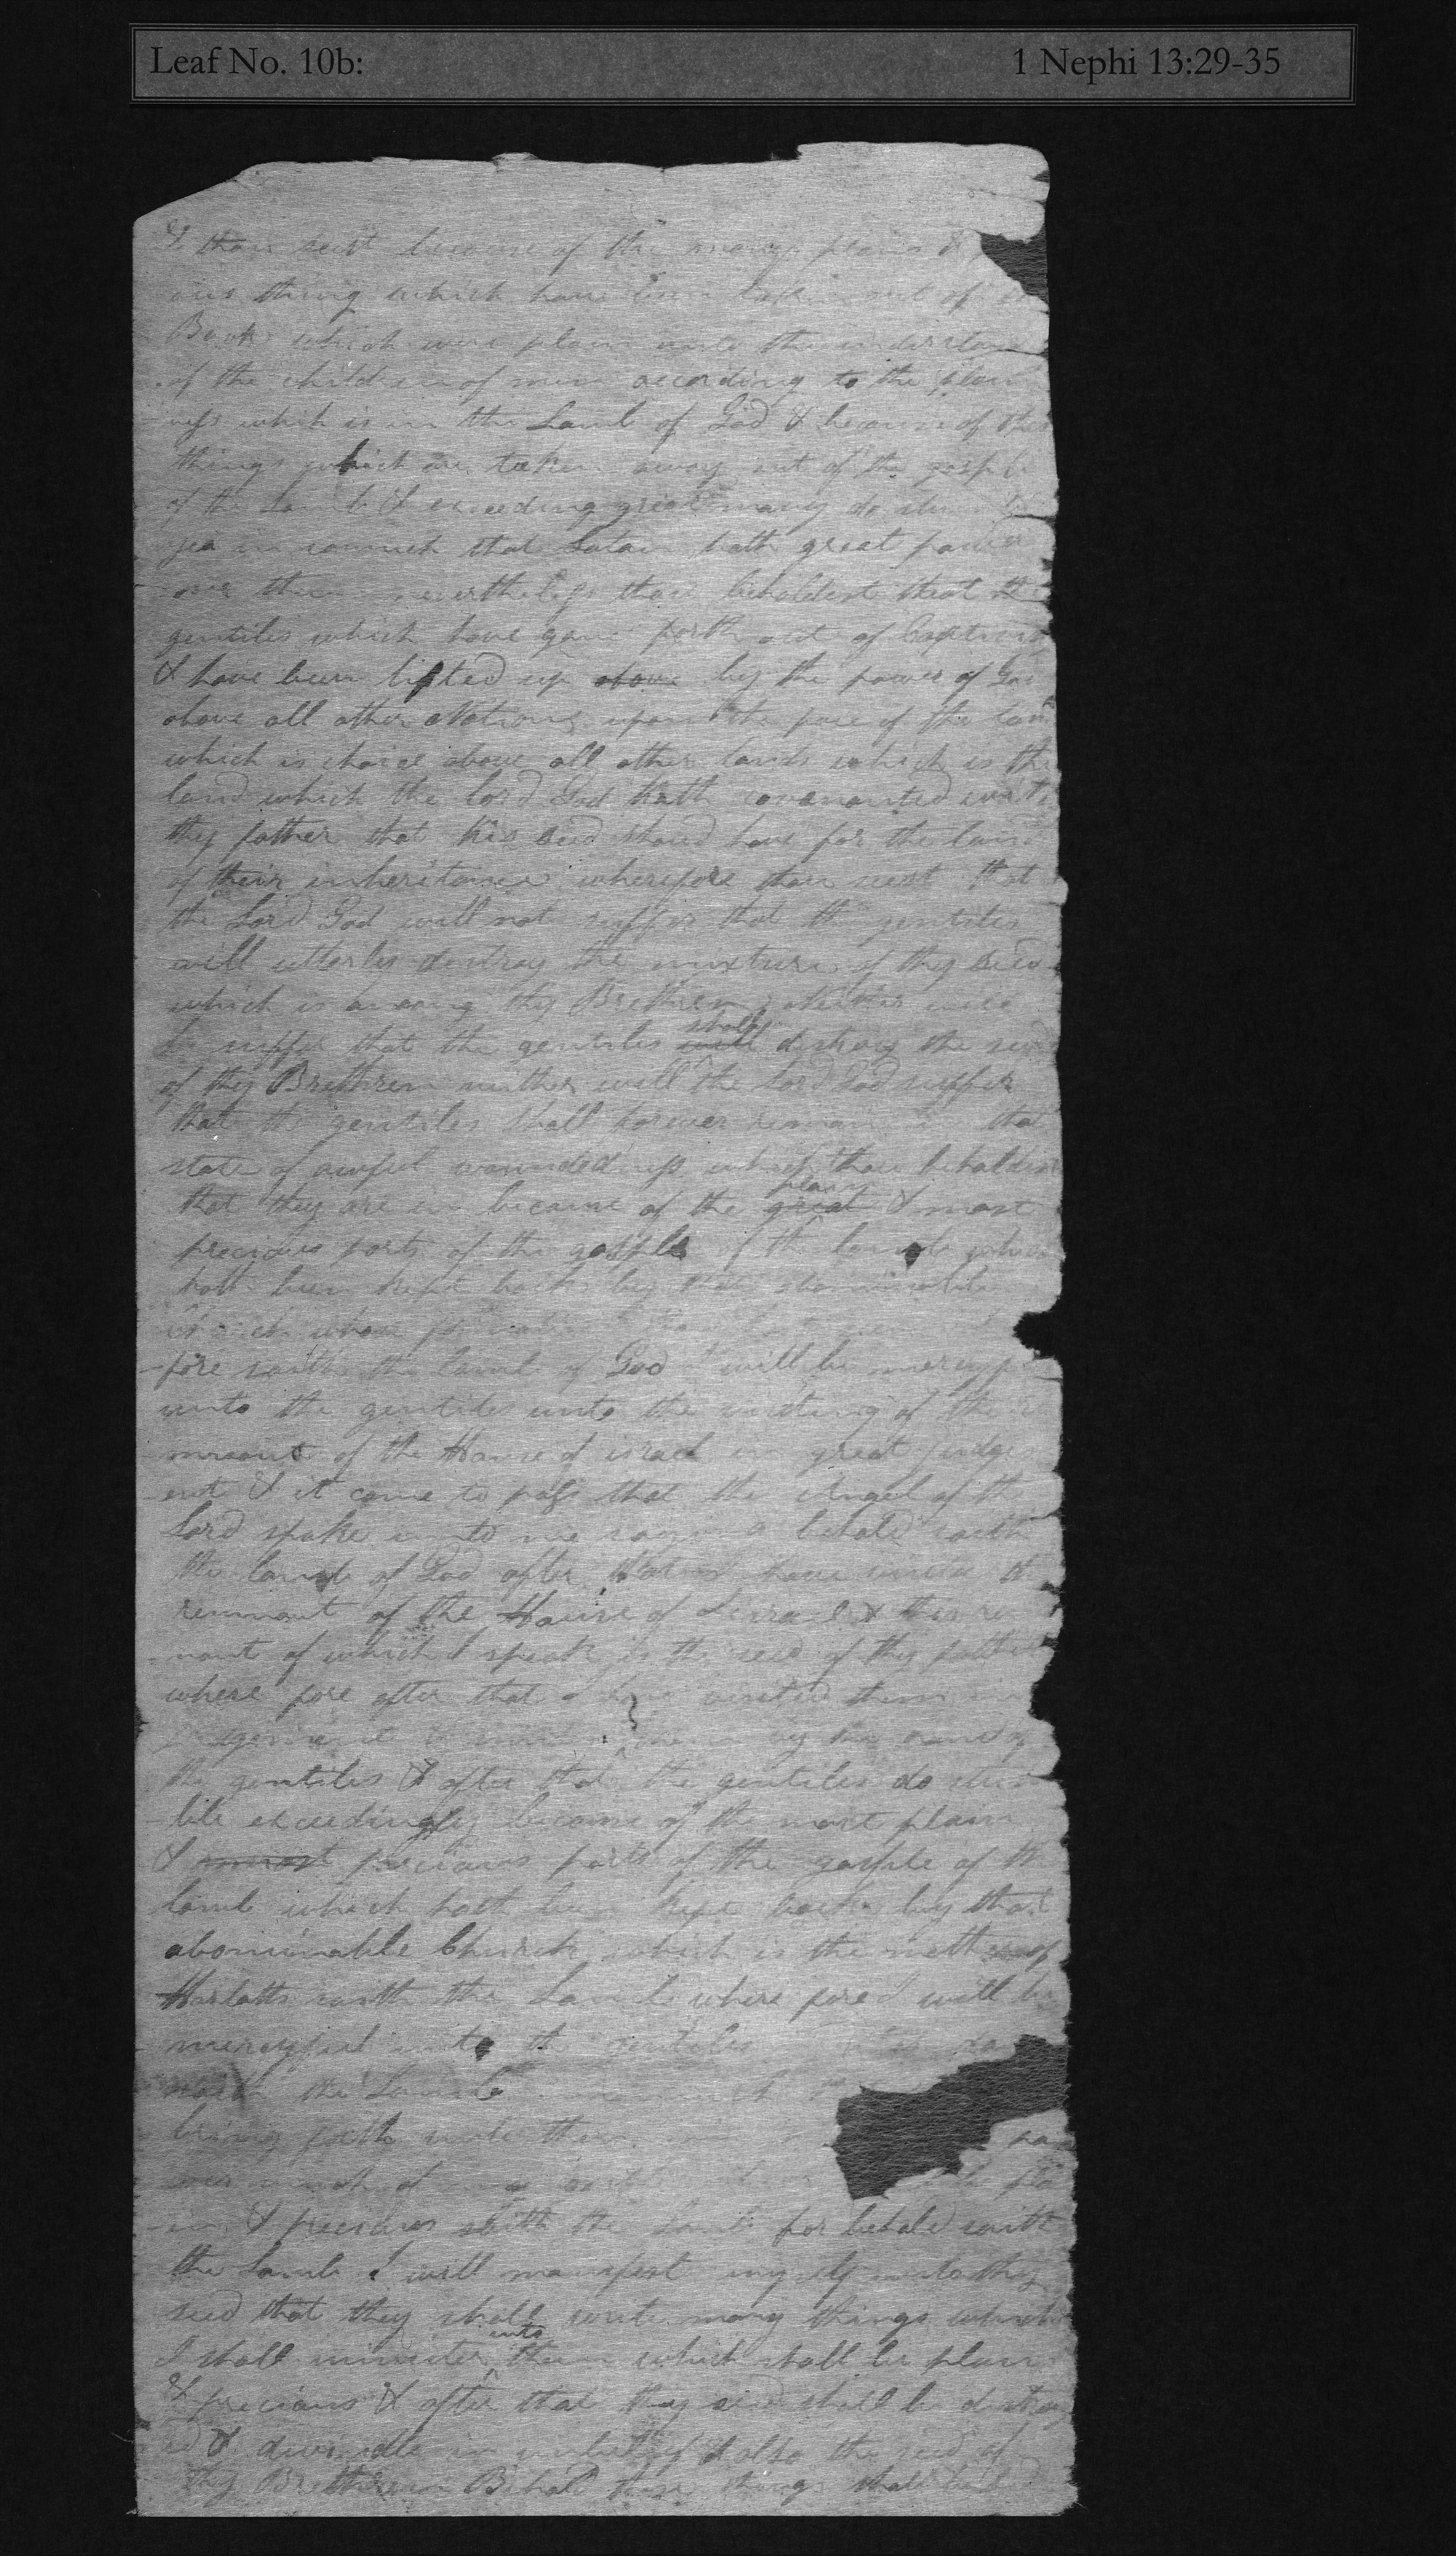 Leaf No. 10b: 1 Nephi 13:29-35
& thou seest because of the many plains &
ous thing which have been taken out of
Book which were plain unto the understan
of the children of men according to the plain
ness which is in the Lamb of God & because of these
things which are taken away out of the gosple
of the Lamb & exceeding great many do stum
yea insomuch that Satan hath great power
over them nevertheless thou beholdest that the
gentiles which have gone forth out of Captivity
& have been lifted up above by the power of God
above all other Nations upon the face of the land
which is choice above all other lands which is the
land which the lord God hath covenanted with
thy father that his seed should have for the land
of their inheritance wherefore thou seest that
the Lord God will not suffer that the gentiles
will utterly destroy the mixture of thy seed
which is among thy Brethren neither will
he suffer that the gentiles will shall destroy the seed
of thy Brethren neither will the Lord God suffer
that the gentiles shall forever remain in that
state of awful woundedness which thou beholdest
that they are in because of the great plain & most
precious parts of the gosple of the lamb which
hath been kept back by that abominable
Church whose
fore saith the lamb of God I will be mercyful
unto the gentiles unto the visiting of the re
mnant of the House of israel in great judgm
ent & it came to pass that the Angel of the
Lord spake unto me saying behold saith
the lamb of God after that I have visited the
remnant of the House of Israel & this rem
nant of which I speak is the seed of thy father
where fore after that I have visited them in
judgement & smitten them by the hand of
the gentiles & after that the gentiles do stum
ble exceedingly because of the most plain
& most precious parts of the gosple of the
lamb which hath been kept back by that
abominable Church which is the mother of
Harlotts saith the Lamb where fore I will be
mercyful unto the gentiles in that day
saith the Lamb insomuch that
bring forth unto them
much of my gosple which shall be pla
in & precious saith the Lamb for behold saith
the Lamb I will manifest myself unto thy
seed that they shall write many things which
I shall minister unto them which shall be plain
& precious & after that thy seed shall be destroy
ed & dwindle in unbelief & also the seed of
thy Brethren Behold these things shall be